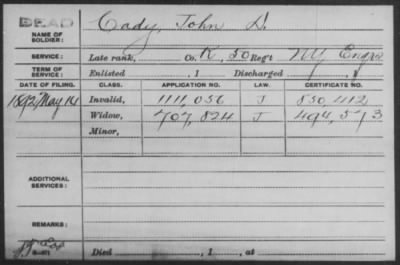 DEAD
NAME OF SOLDIER: Cady, John D.
SERVICE: Late rank, Co. K, 50 Reg't NY Engrs
TERM OF SERVICE: Enlisted , 1 Discharged , 1
DATE OF FILING. CLASS. APPLICATION NO. LAW. CERTIFICATE NO.
1892 May 14 Invalid, 1111,056 J 850,412
Widow, 707,824 J 494,573
Minor,
ADDITIONAL SERVICES:
REMARKS:
Died , 1 , at